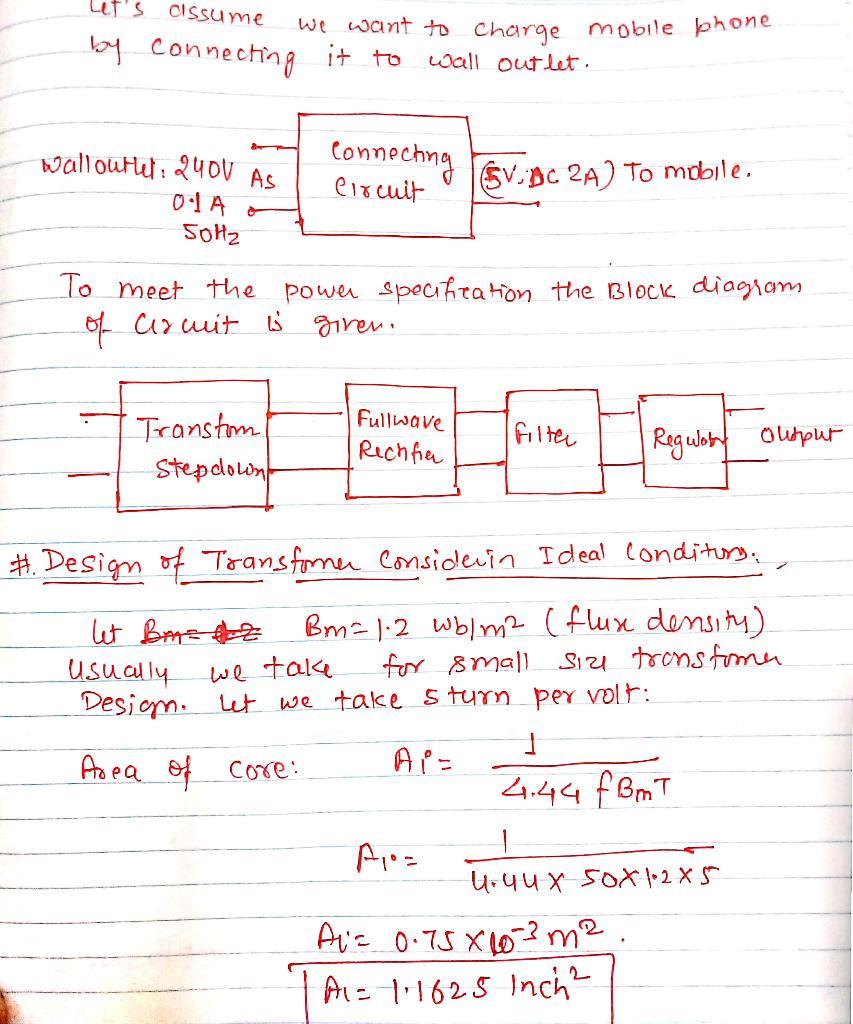 Let's assume we want to charge mobile phone
by connecting it to wall outlet.
Wall outlet: 240V As
0.1 A
50Hz
Connecting
Circuit
(5V, DC 2A) To mobile.
To meet the power specification the Block diagram
of Circuit is given.
Transfom
Stepdown
Fullwave
Rectifier
Filter
Regulator
Output
#. Design of Transfomer Considerin Ideal Conditions:
let Bm= 1.2 wb/m² (flux density)
Usually we take for small size transfomer
Design. let we take 5 turn per volt:
Area of core: Ai = 1 / 4.44 f BmT
Ai = 1 / 4.44 x 50x1.2x5
Ai = 0.75 x10⁻³ m².
Ai = 1.1625 Inch²